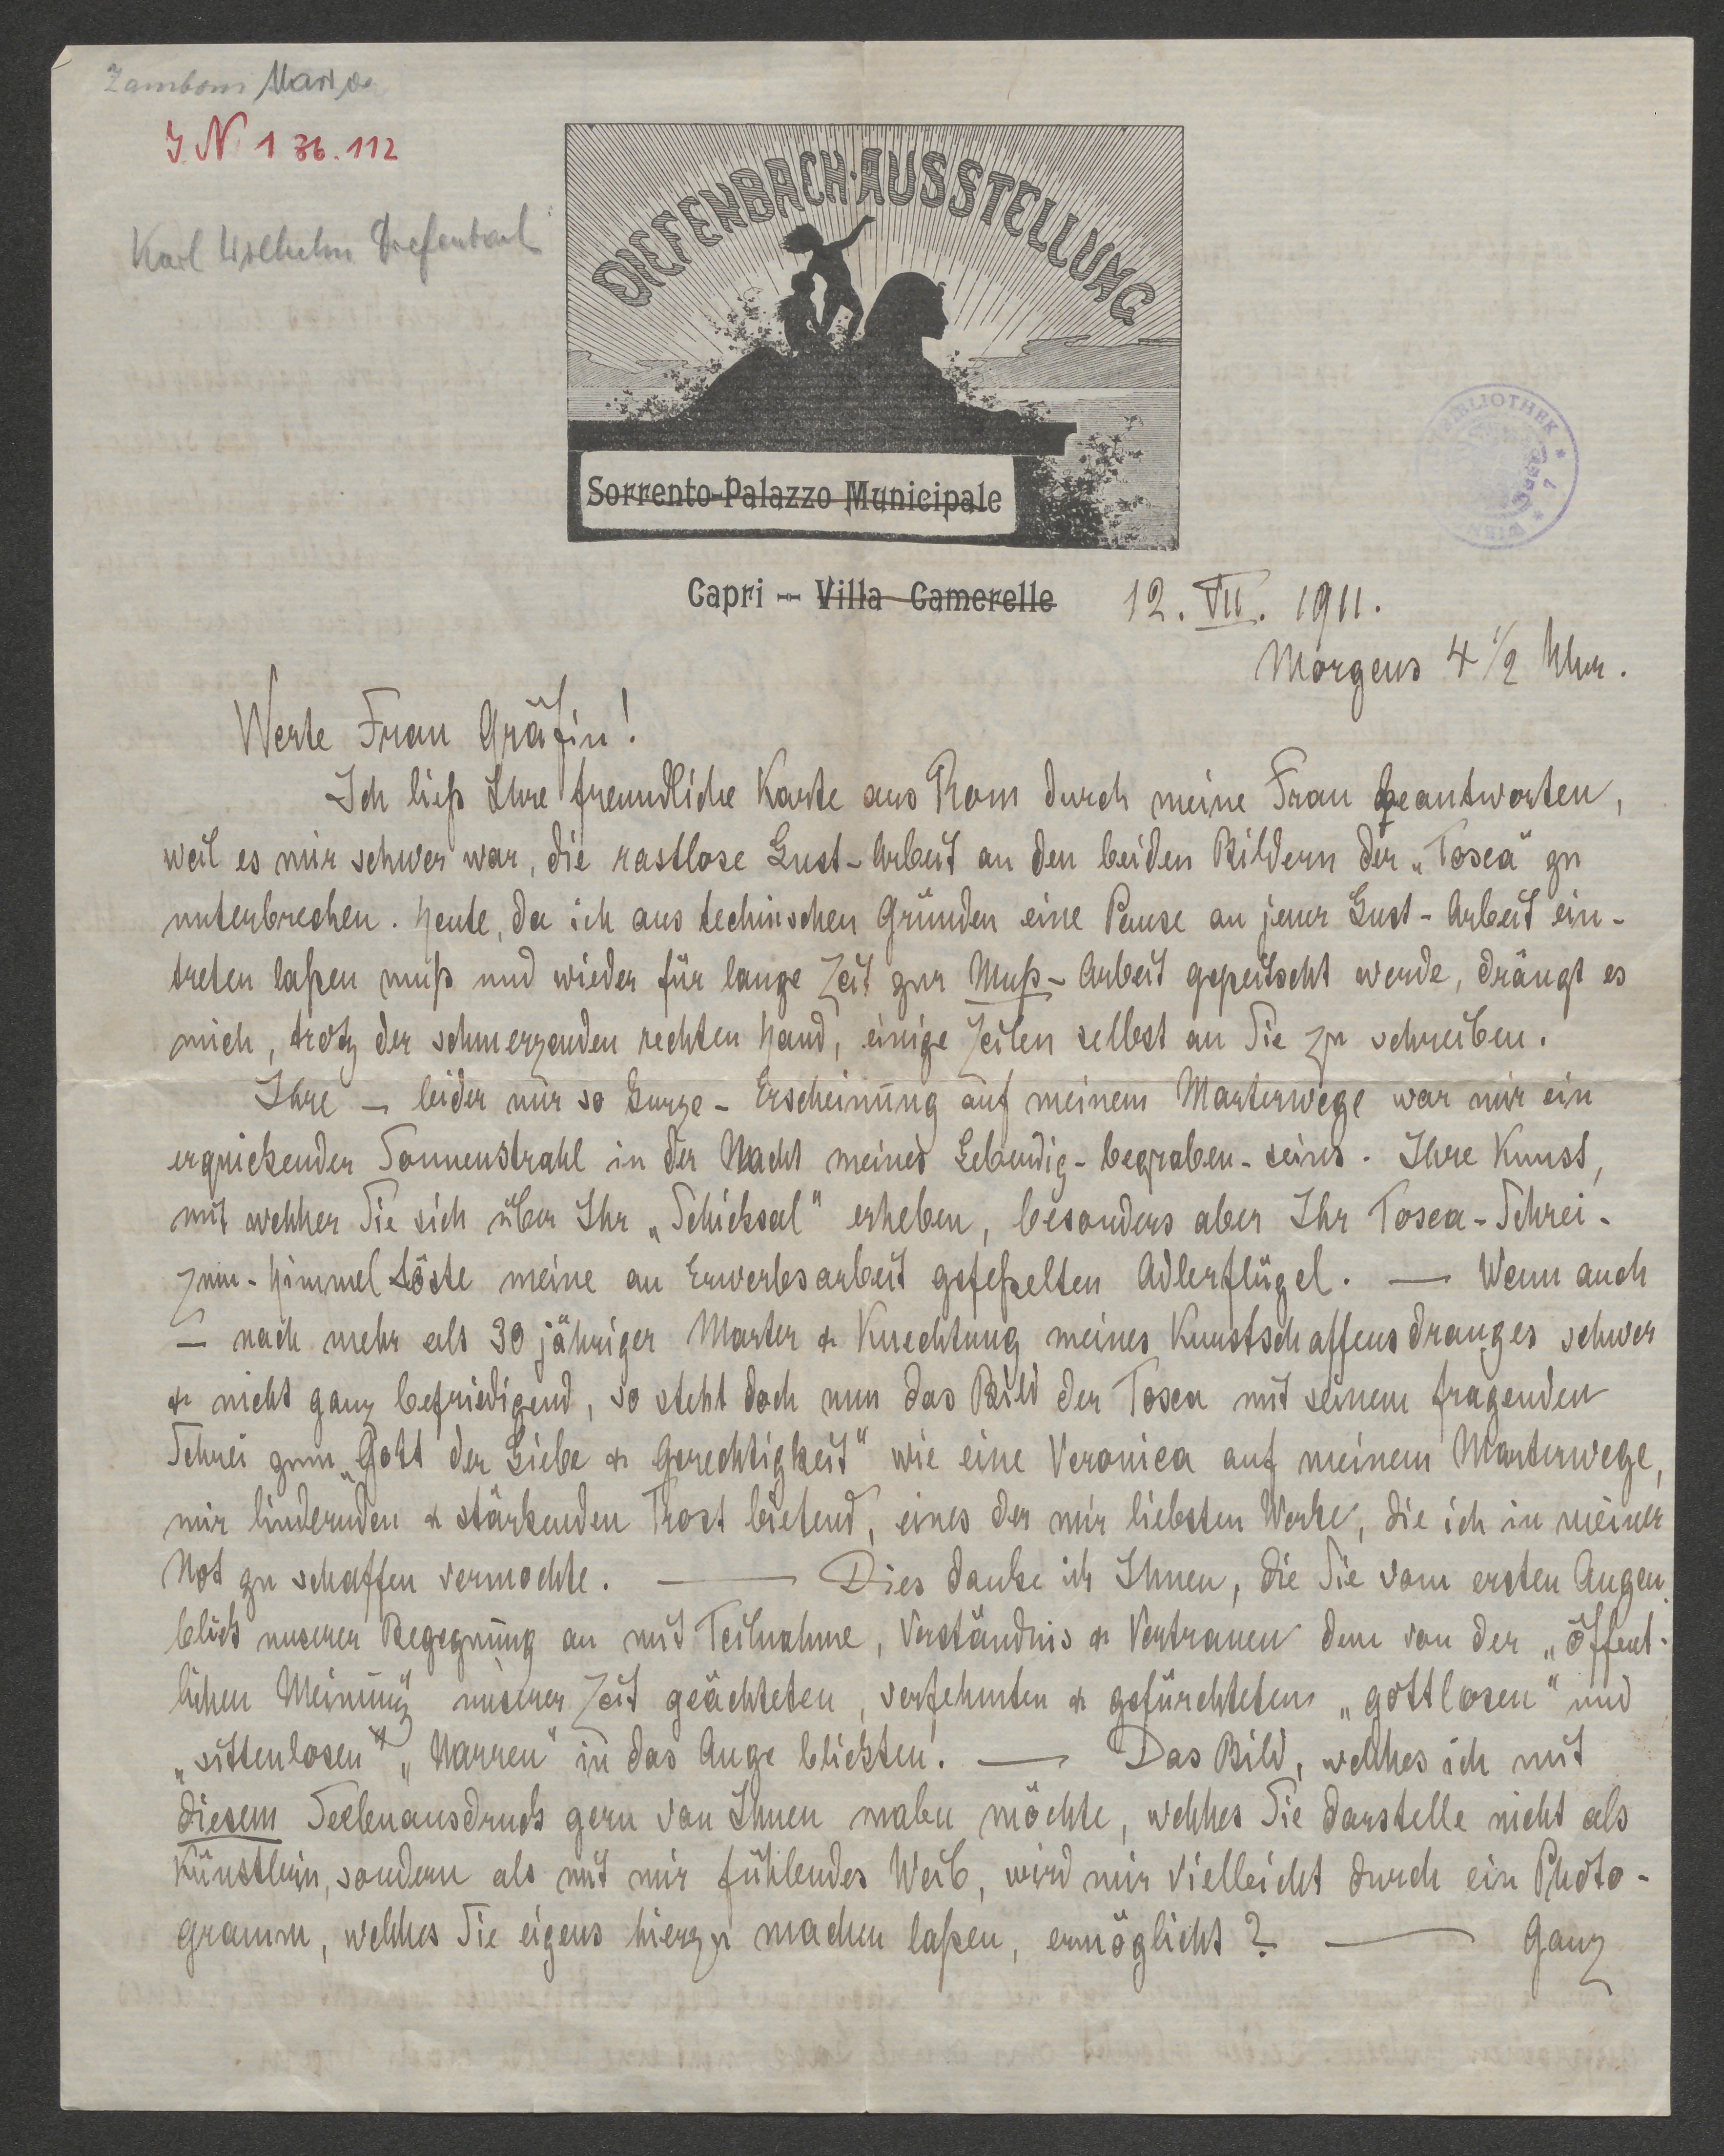 Zamboni Maria
I N 136.112
Karl Wilhelm Diefenbach
DIEFENBACH-AUSSTELLUNG
Sorrento-Palazzo Municipale
BIBLIOTHEK
WIEN
Capri -- Villa Camerelle 12. VII. 1911.
Morgens 4 1/2 Uhr.
Werte Frau Gräfin!
Ich ließ Ihre freundliche Karte aus Rom durch meine Frau beantworten,
weil es mir schwer war, die rastlose Lust-Arbeit an den beiden Bildern der „Tosca“ zu
unterbrechen. Heute, da ich aus technischen Gründen eine Pause an jener Lust-Arbeit ein-
treten laßen muß und wieder für lange Zeit zur Muß-Arbeit gepeitscht werde, drängt es
mich, trotz der schmerzenden rechten Hand, einige Zeilen selbst an Sie zu schreiben.
Ihre – leider nur so kurze – Erscheinung auf meinem Marterwege war mir ein
erquickender Sonnenstrahl in der Nacht meines Lebendig-begraben-seins. Ihre Kunst,
mit welcher Sie sich über Ihr „Schicksal“ erheben, besonders aber Ihr Tosca-Schrei-
zum-Himmel löste meine an Erwerbsarbeit gefeßelten Adlerflügel. — Wenn auch
– nach mehr als 30 jähriger Marter & Knechtung meines Kunstschaffensdranges schwer
& nicht ganz befriedigend, so steht doch nun das Bild der Tosca mit seinem fragenden
Schrei zum „Gott der Liebe & Gerechtigkeit“ wie eine Veronica auf meinem Marterwege,
mir lindernden & stärkenden Trost bietend, eines der mir liebsten Werke, die ich in meiner
Not zu schaffen vermochte. — Dies danke ich Ihnen, die Sie vom ersten Augen-
blick unserer Begegnung an mit Teilnahme, Verständnis & Vertrauen dem von der „öffent-
lichen Meinung“ unserer Zeit geächteten, verfehmten & gefürchteten „gottlosen“ und
„sittenlosen“ „Narren“ in das Auge blickten. — Das Bild, welches ich mit
diesem Seelenausdruck gern von Ihnen malen möchte, welches Sie darstelle nicht als
Künstlerin, sondern als mit mir fühlendes Weib, wird mir vielleicht durch ein Photo-
gramm, welches Sie eigens hierzu machen laßen, ermöglicht? — Ganz